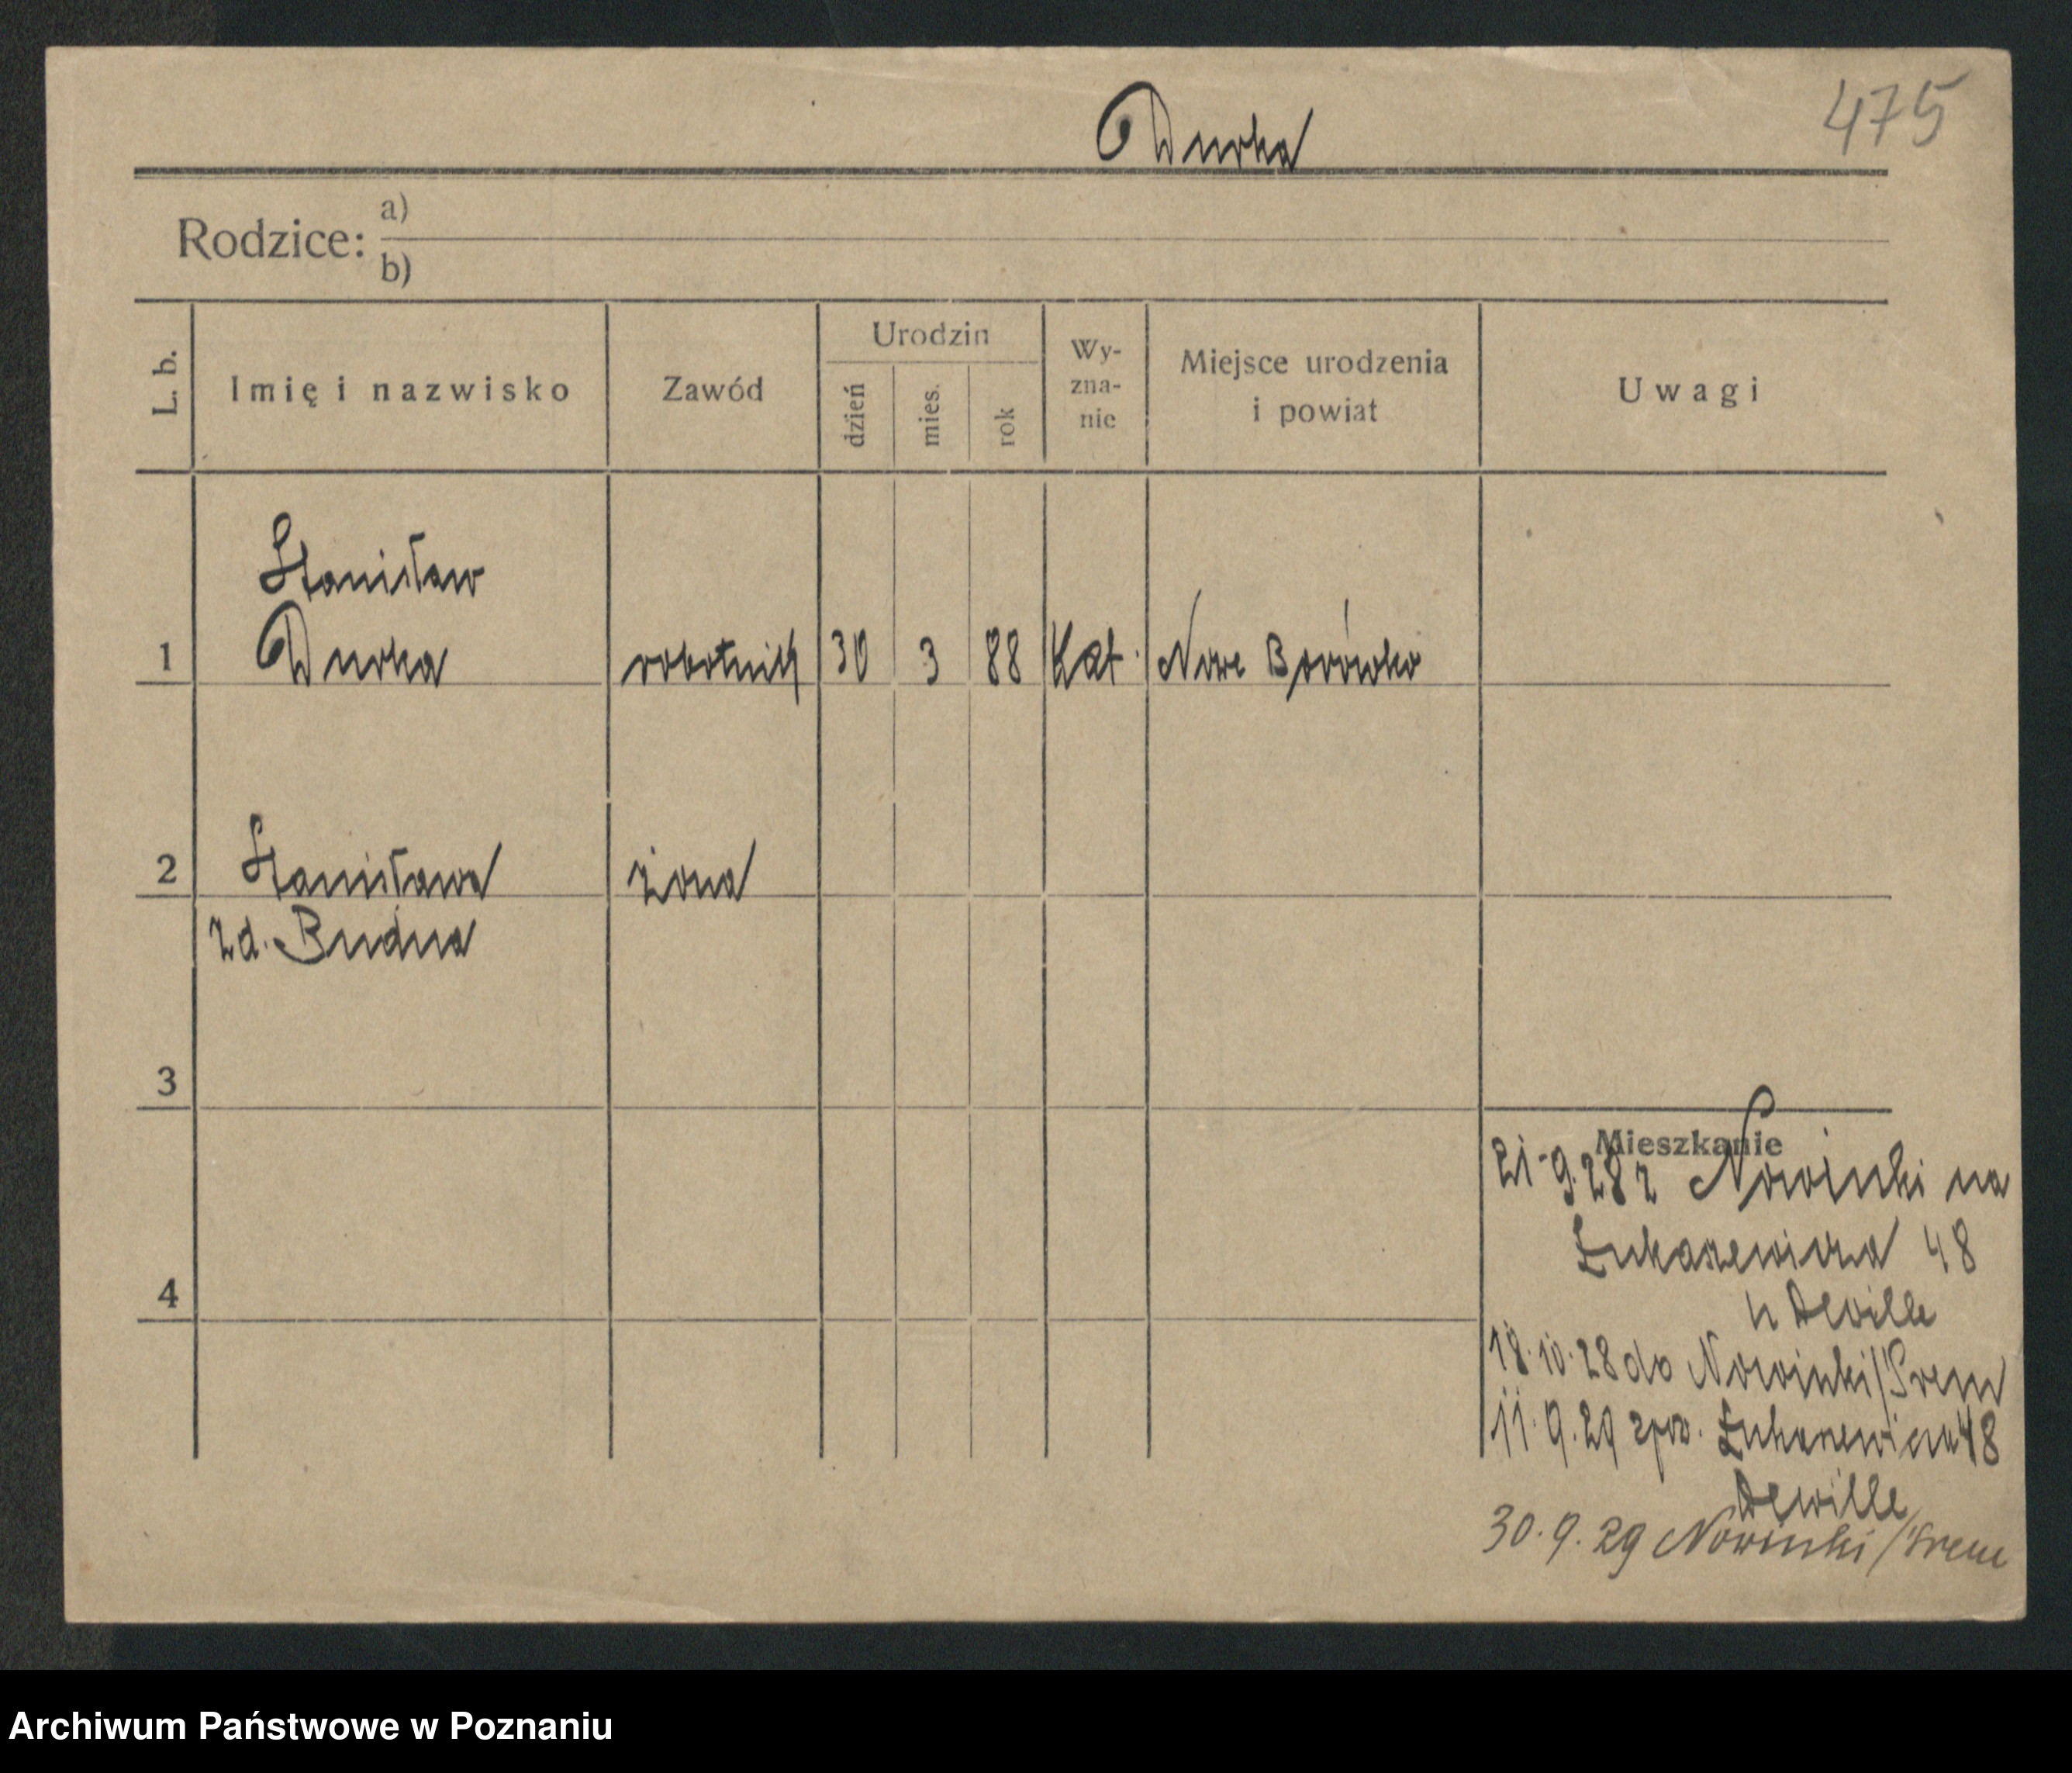 475
Durka
Rodzice: a)
b)
L. b.
Imię i nazwisko
Zawód
Urodzin
dzień
mies.
rok
Wy-
zna-
nie
Miejsce urodzenia
i powiat
Uwagi
Stanisław
1 Durka robotnik 30 3 88 Kat. Nowe Borówko
2 Stanisława żona
zd. Budna
3
Mieszkanie
21.9.28 z Nowinki na
Łukaszewicza 48
4
u Dewille
18.10.28 do Nowinki/Śrem
11.9.29 spw. Łukaszewicza 48
Dewille
30.9.29 Nowinki/Śrem
Archiwum Państwowe w Poznaniu